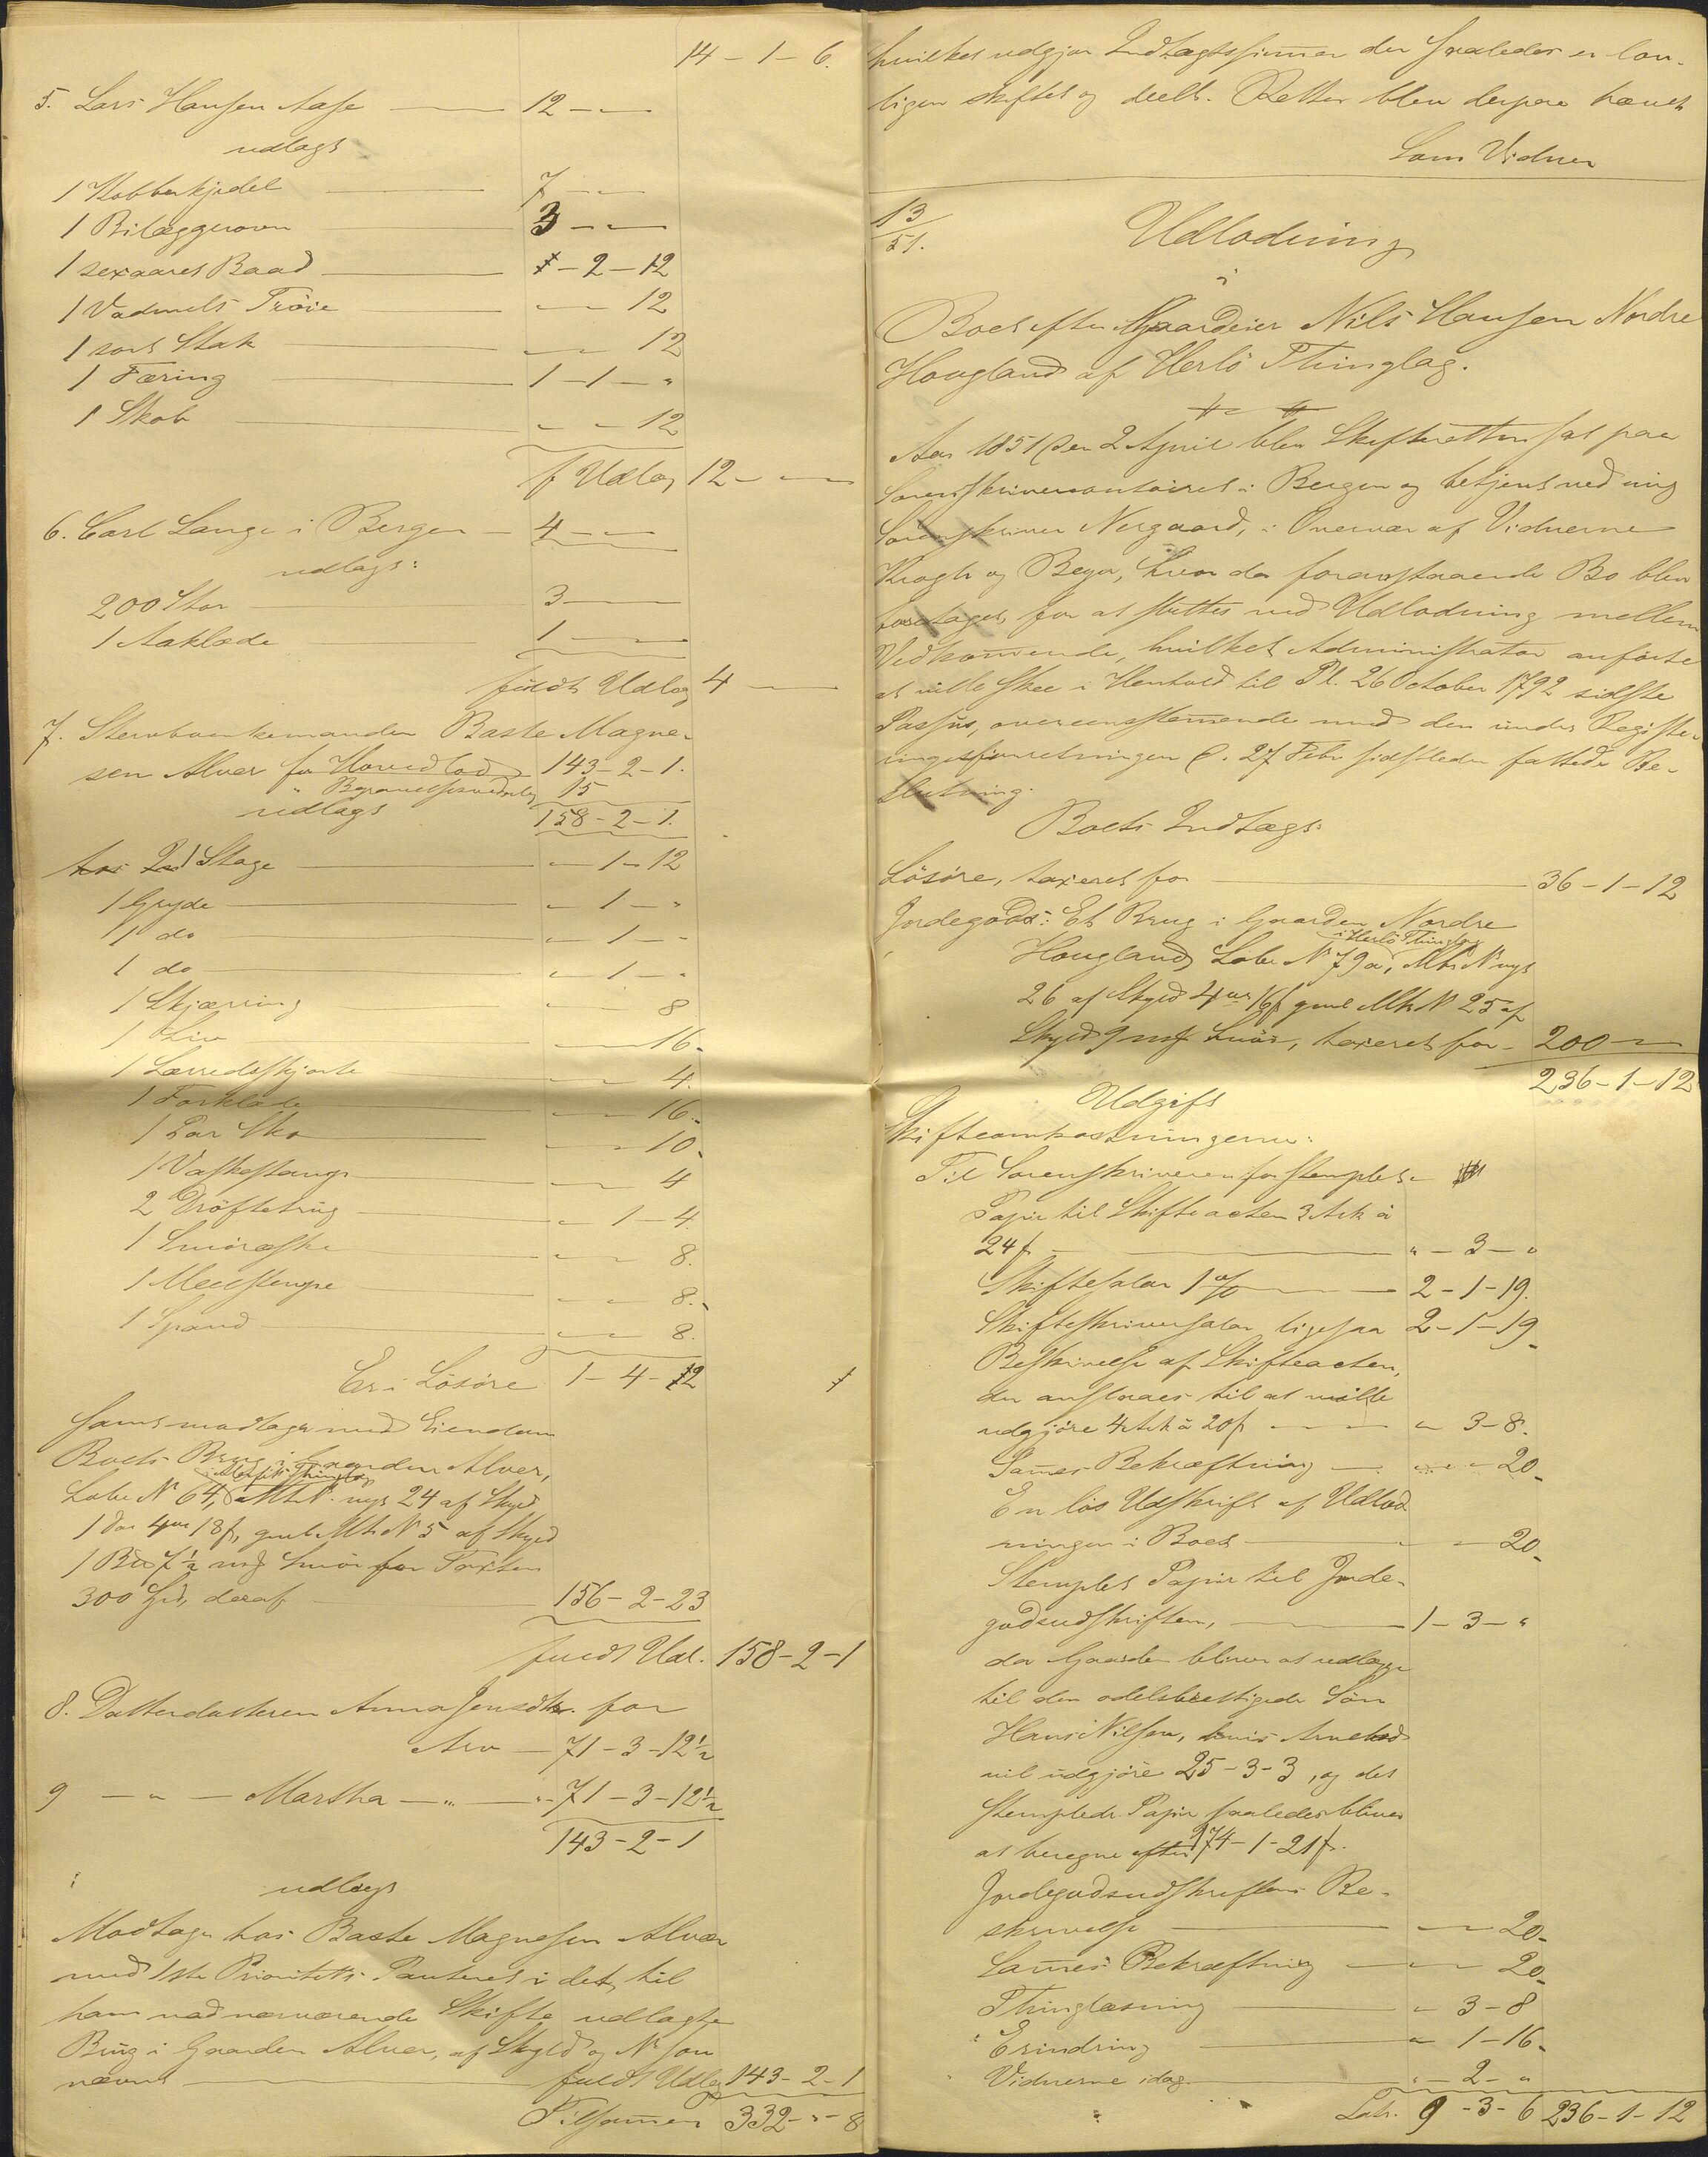 14 - 1 - 6.
5. Lars Hansen Aase — 12 - -
udlagt
1 Kobberkjedel — 7 - -
1 Bilæggerovn — 3 - -
1 sexaaret Baad — 1 - 2 - 12
1 Vadmels Trøie — - - 12
1 sort Stak — - - 12
1 Færing — 1 - 1 - "
1 Skab — - - 12
f Udlæg 12 - -
6. Carl Lange i Bergen — 4 - -
udlagt:
200 Stør — 3 - -
1 Aaklæde — 1 - -
fuldt Udlæg 4 - -
7. Stervboenkemanden Baste Magne-
sen Alver for Hovedlod 143 - 2 - 1.
" Begravelsesudlæg 15
udlagt 158 - 2 - 1.
1 Stage — - 1 - 12
1 Gryde — - 1 - "
1 do — - 1 - -
1 do — - 1 - -
1 Skjæring — - - 8
1 Liv — - - 16.
1 Lærredsskjorte — - - 4.
1 Forklæde — - - 16.
1 Par Sko — - - 10.
1 Vaskestamp — - - 4
2 Drøftetrug — - 1 - 4.
1 Smøræske — - - 8.
1 Meelstampe — - - 8.
1 Spand — - - 8.
Er i Løsøre 1 - 4 - 12
samt modtager med Eiendom
Boets Brug i Gaarden Alver,
i Alversunds Thinglag
Løbe No 64, Mt. N. nyt 24 af Skyld
1 Dar 4 ort 18 s, gml. Mt. N 5 af Skyld
1 B 7½ mk Smør for Taxten
300 Spd, deraf — 156 - 2 - 23
fuldt Udl. 158 - 2 - 1
8. Datterdatteren Anna Jensdtr. for
Arv — 71 - 3 - 12½
9 — " — Martha — " — " - 71 - 3 - 12½
143 - 2 - 1
udlagt
Modtager hos Baste Magnesen Alver
med 1ste Prioritets Panteret i det, til
ham ved nærværende Skifte udlagte
Brug i Gaarden Alver, af Skyld og No som
nævnt — fuldt Udlæg 143 - 2 - 1
Tilsammen 332 - " - 8
hvilket udgjør Indtægtssummen der saaledes er lov-
ligen skiftet og deelt. Retten blev derpaa hævet
Som Vidner
13/51.
Udlodning
i
Boet efter Gaardeier Nils Hansen Nordre
Hougland af Herlø Thinglag.
Aar 1851 den 2 April blev Skifteretten sat paa
Sorenskrivercontoiret i Bergen og betjent ved mig
Sorenskriver Norgaard, i Overvær af Vidnerne
Krogh og Beyer, hvor da foranstaaende Bo blev
foretaget, for at sluttes ved Udlodning mellem
Vedkommende, hvilket Administrator anførte
at ville skee i Henhold til Pl. 26 October 1792 sidste
Passus, overeensstemmende med den under Registe-
ringsforretningen d. 27 Febr sidstleden fattede Be-
slutning.
Boets Indtægt:
Løsøre, taxeret for — 36 - 1 - 12
Jordegods: Et Brug i Gaarden Nordre
i Herlø Thinglag
Hougland, Løbe N 79 a, Mt. N nyt
26 af Skyld 4 ort 16 s, gml Mt. N 25 af
Skyld 9 mk Smør, taxeret for - 200 - -
236 - 1 - 12
Udgift
Skifteomkostningerne:
Til Sorenskriveren for stemplet
Papir til Skifteacten 3 Ark à
24 s — " - 3 - "
Skiftesalær 1 % — 2 - 1 - 19.
Skifteskriversalær ligesaa 2 - 1 - 19.
Beskrivelse af Skifteacten,
der ansees til at ville
udgjøre 4 Ark à 20 s — " 3 - 8.
Sammes Bekræftning — - - 20.
En løs Udskrift af Udlod-
ningen i Boet — - - 20.
Stemplet Papir til Jorde-
godsudskriften, — 1 - 3 - "
da Gaarden bliver at udlægge
til den odelsberettigede Søn
Hans Nilsen, hvis Arvelod
vil udgjøre 25 - 3 - 3, og det
stemplede Papir saaledes bliver
at beregne efter 174 - 1 - 21 s.
Jordegodsudskriftens Be-
skrivelse — - - 20.
Sammes Bekræftning — - - 20.
Thinglæsning — - 3 - 8
Erindring — - 1 - 16.
Vidnerne idag — " - 2 - "
Lats. 9 - 3 - 6 236 - 1 - 12